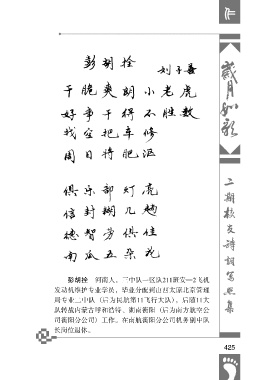 彭胡拴
刘子晏
干脆爽朗小老虎
好事干得不胜数
找空把车修
周日将肥沤
俱乐部灯亮
信封糊几
德智劳俱佳
南瓜五朵花
彭胡拴 河南人，三中队一区队211班安—2飞机
发动机维护专业学员，毕业分配到山西太原北京管理
局专业二中队（后为民航第11飞行大队），后随11大
队转战内蒙古呼和浩特、湖南衡阳（后为南方航空公
司衡阳分公司）工作。在南航衡阳分公司机务副中队
长岗位退休。
岁月如歌
二期校友诗词写照集
425